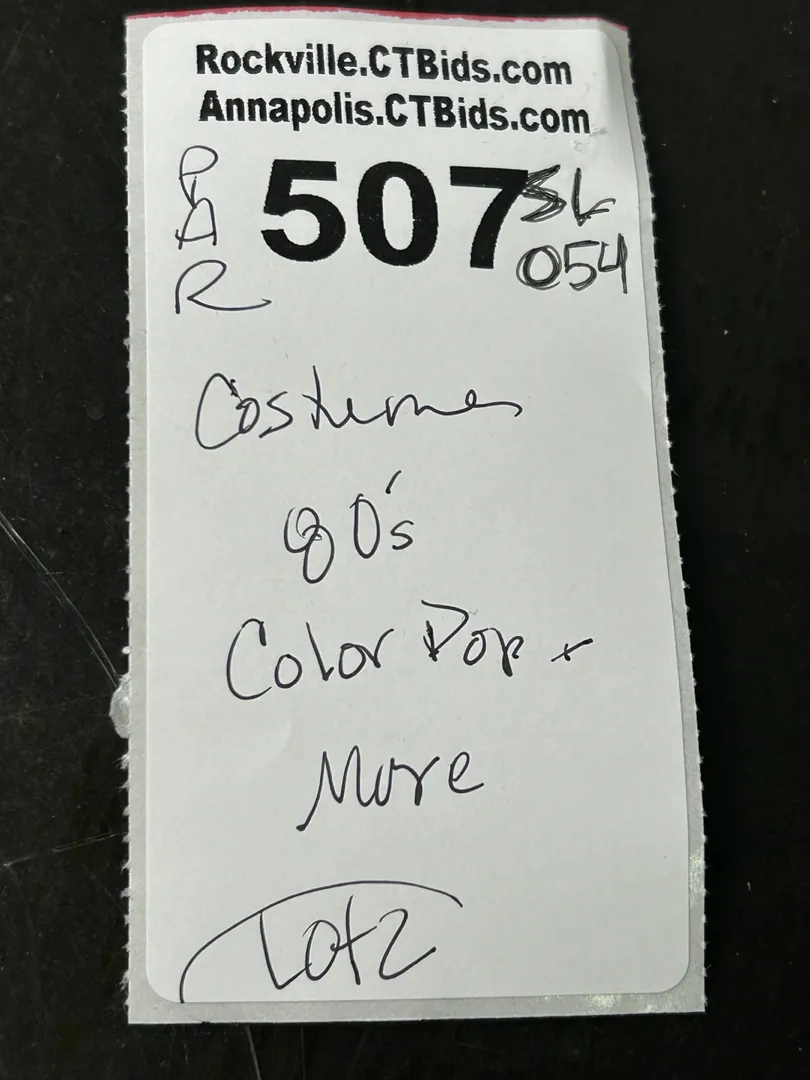 Rockville.CTBids.com
Annapolis.CTBids.com
507
SL
054
Costumes
80's
Color Pop +
More
1 of 2